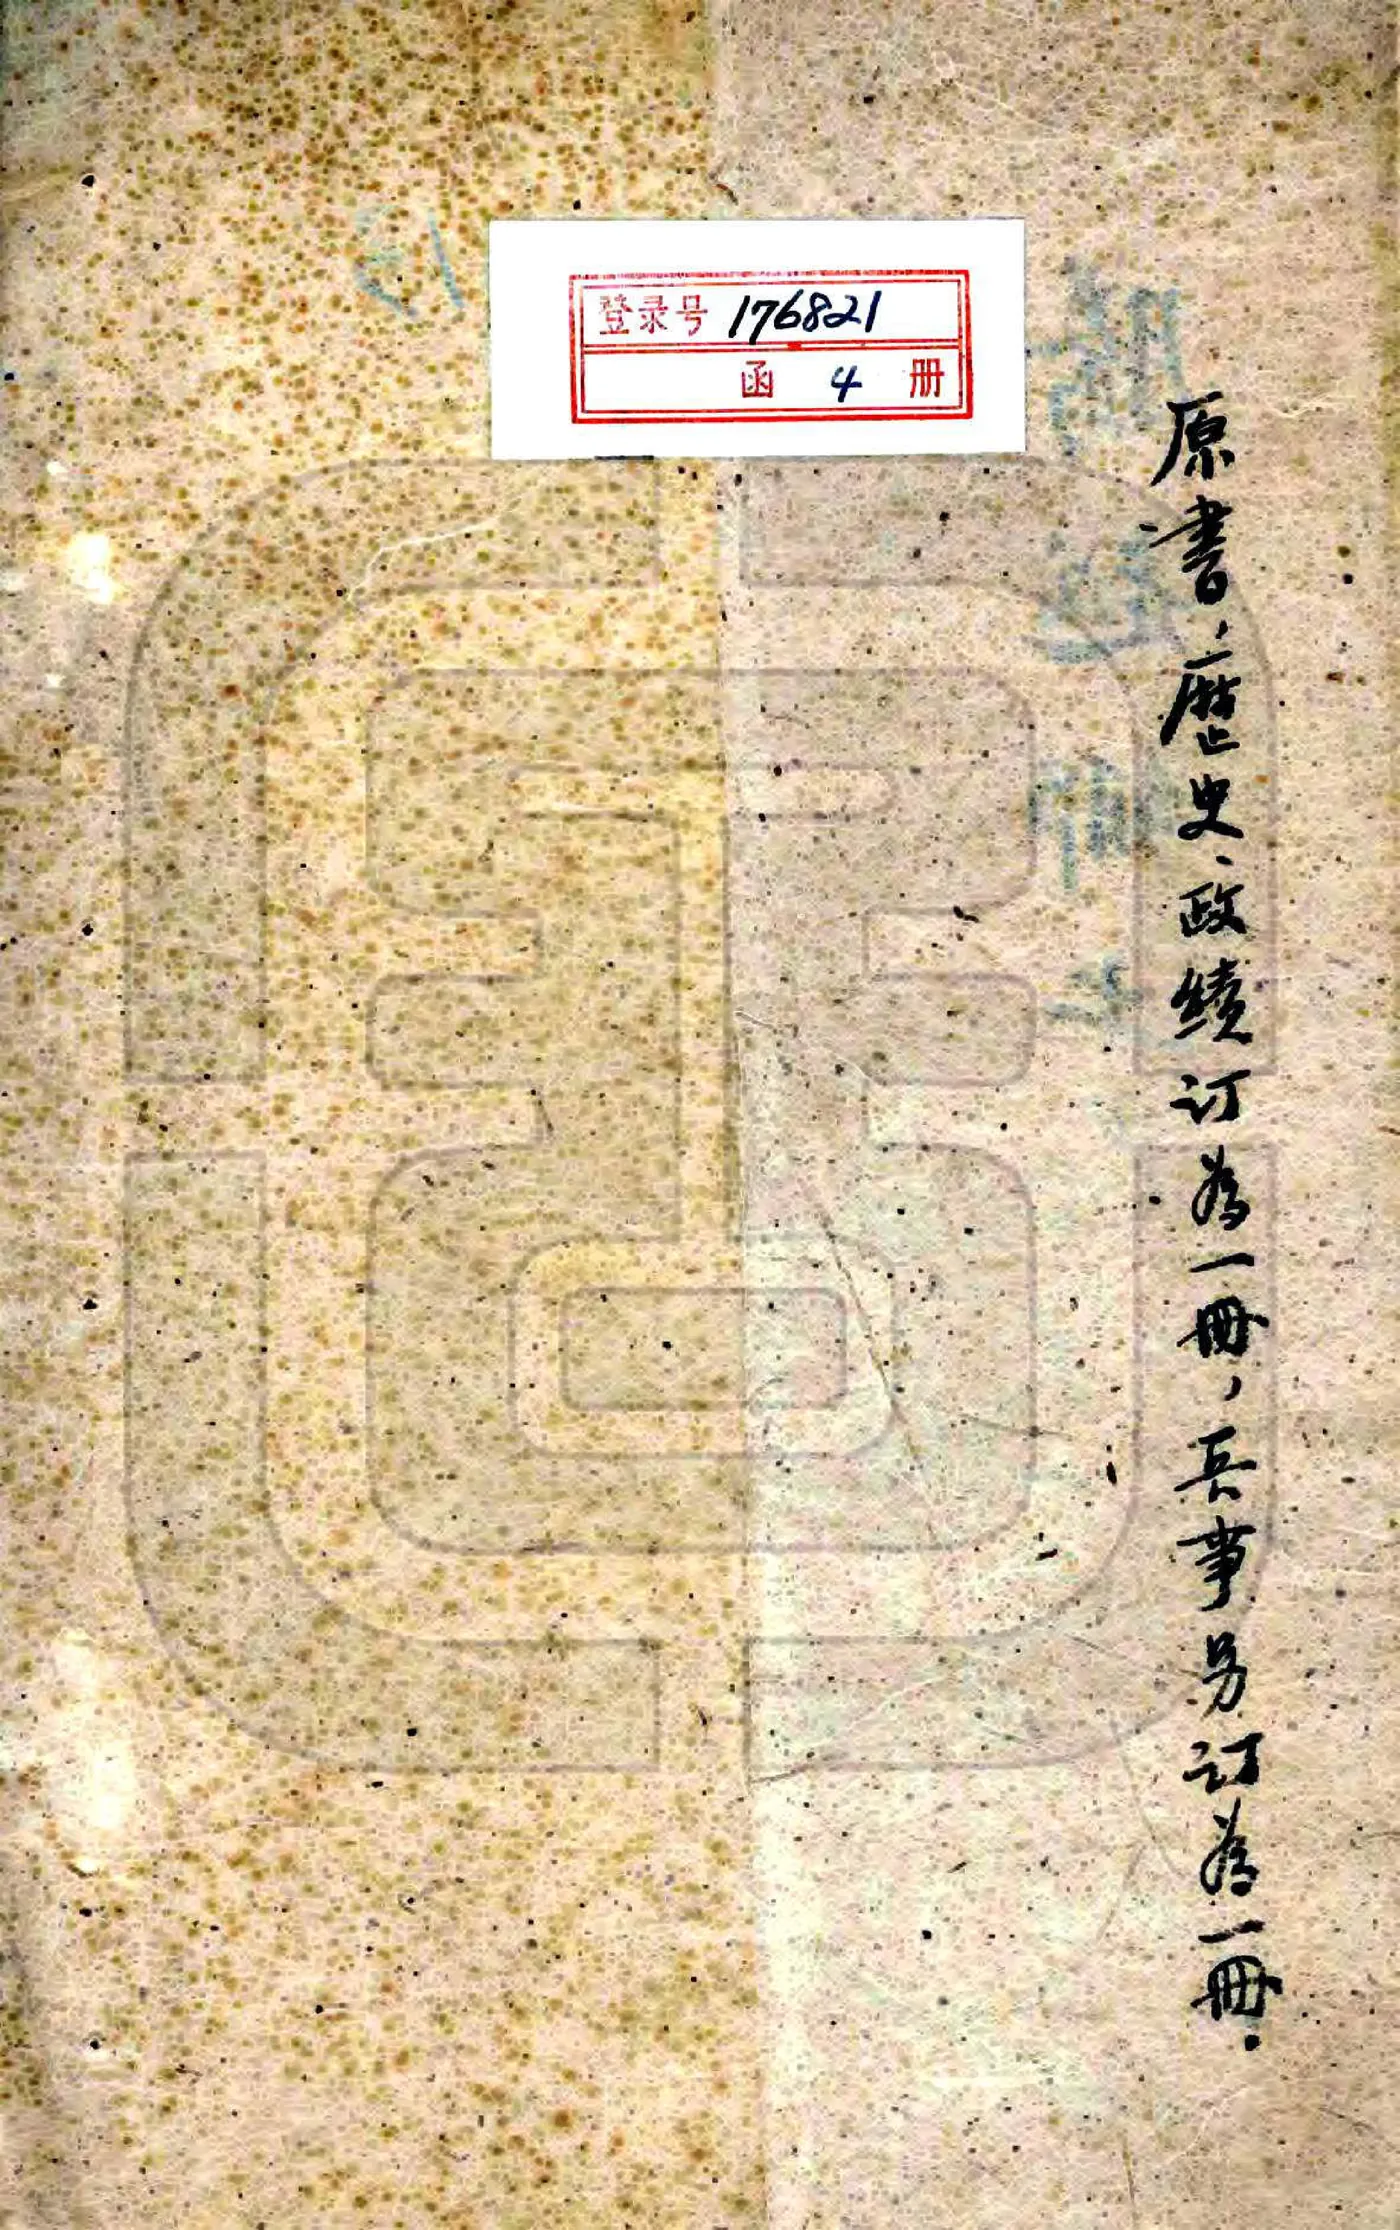 登录号 176821
函 4 册
原書，歷史、政績订為一冊，兵事另订為一冊.